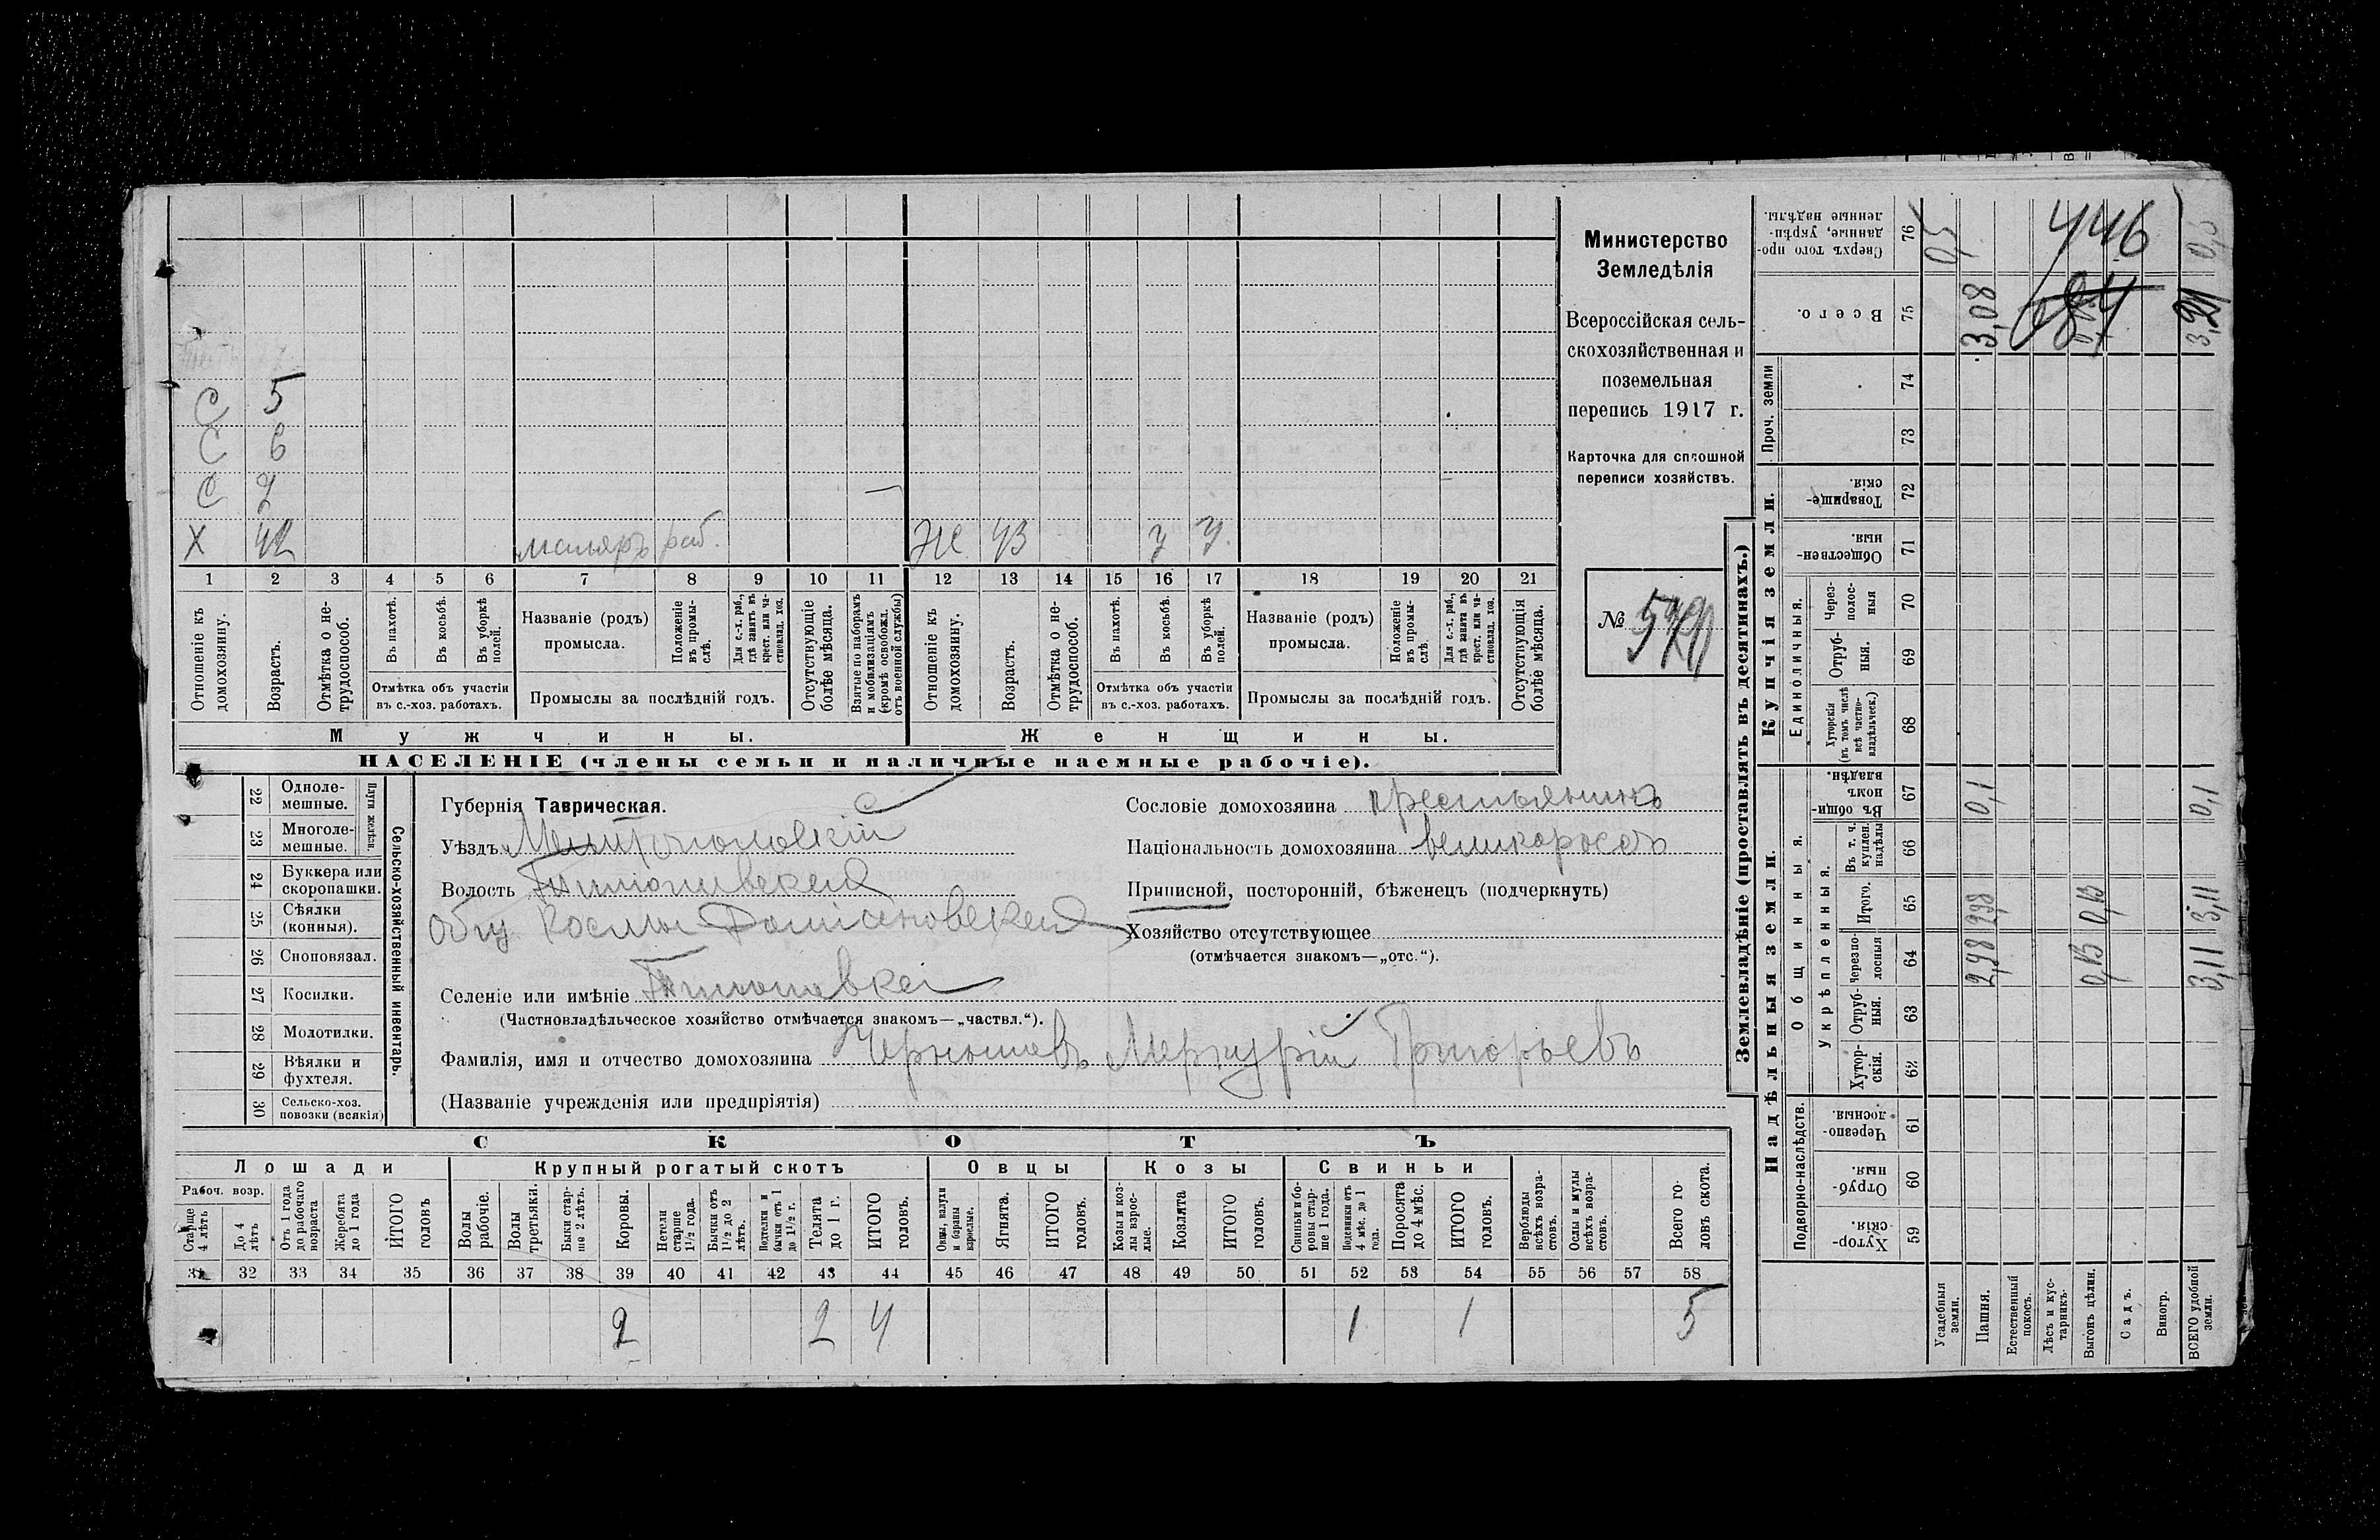 Министерство
Земледѣлія
Всероссійская сель-
скохозяйственная и
поземельная
перепись 1917 г.
Карточка для сплошной
переписи хозяйствъ.
№
С 5
С 6
С 2
Х 42 маляръ раб. Ж 43 У У.
1 2 3 4 5 6 7 8 9 10 11 12 13 14 15 16 17 18 19 20 21
Отношеніе къ домохозяину.
Возрастъ.
Отмѣтка о не-трудоспособ.
Въ пахотѣ.
Въ косьбѣ.
Въ уборкѣ полей.
Отмѣтка объ участіи
въ с.-хоз. работахъ.
Названіе (родъ)
промысла.
Положеніе въ промы-слѣ.
Для с.-х. раб., гдѣ занятъ въ крест. или ча-стновлад. хоз.
Промыслы за послѣдній годъ.
Отсутствующіе болѣе мѣсяца.
Взятые по наборамъ и мобилизаціямъ (кромѣ освобожд. отъ военной службы)
Отношеніе къ домохозяину.
Возрастъ.
Отмѣтка о не-трудоспособ.
Въ пахотѣ.
Въ косьбѣ.
Въ уборкѣ полей.
Отмѣтка объ участіи
въ с.-хоз. работахъ.
Названіе (родъ)
промысла.
Положеніе въ промы-слѣ.
Для с.-х. раб., гдѣ занята въ крест. или ча-стновлад. хоз.
Промыслы за послѣдній годъ.
Отсутствующія болѣе мѣсяца.
Мужчины.
Женщины.
НАСЕЛЕНІЕ (члены семьи и наличные наемные рабочіе).
Сельско-хозяйственный инвентарь.
Плуги желѣзн.
22 Одноле-мешные.
23 Многоле-мешные.
24 Буккера или скоропашки.
25 Сѣялки (конныя).
26 Сноповязал.
27 Косилки.
28 Молотилки.
29 Вѣялки и фухтеля.
30 Сельско-хоз. повозки (всякія)
Губернія Таврическая.
Уѣздъ Мелитопольскій
Волость
Общ. Космо Даміановская
Селеніе или имѣніе
(Частновладѣльческое хозяйство отмѣчается знакомъ—„частвл.“).
Фамилія, имя и отчество домохозяина Чернышевъ Меркурій Григорьевъ
(Названіе учрежденія или предпріятія)
Сословіе домохозяина крестьянинъ
Національность домохозяина великороссъ
Приписной, посторонній, бѣженецъ (подчеркнуть)
Хозяйство отсутствующее
(отмѣчается знакомъ—„отс.“).
СКОТЪ
Лошади
Крупный рогатый скотъ
Овцы
Козы
Свиньи
Рабоч. возр.
Старше 4 лѣтъ
До 4 лѣтъ
Отъ 1 года до рабочаго возраста
Жеребята до 1 года
ИТОГО головъ
Волы рабочіе.
Волы третьяки.
Быки стар-ше 2 лѣтъ.
Коровы.
Нетели старше 1½ года.
Бычки отъ 1½ до 2 лѣтъ.
Подтелки и бычки отъ 1 до 1½ г.
Телята до 1 г.
ИТОГО головъ.
Овцы, валухи и бараны взрослые.
Ягнята.
ИТОГО головъ.
Козы и коз-лы взрос-лые.
Козлята
ИТОГО головъ.
Свиньи и бо-ровы стар-ше 1 года.
Подсвинки отъ 4 мѣс. до 1 года.
Поросята до 4 мѣс.
ИТОГО головъ.
Верблюды всѣхъ возра-стовъ.
Ослы и мулы всѣхъ возра-стовъ.
Всего го-ловъ скота.
31 32 33 34 35 36 37 38 39 40 41 42 43 44 45 46 47 48 49 50 51 52 53 54 55 56 57 58
2 2 4 1 1 5
Землевладѣніе (проставлять въ десятинахъ.)
Надѣльныя земли.
Купчія земли.
Проч. земли
Подворно-наслѣдств.
Общинныя.
Укрѣпленныя.
Единоличныя.
Хутор-скія. 59
Отруб-ныя. 60
Черезпо-лосныя 61
Хутор-скія. 62
Отруб-ныя. 63
Черезпо-лосныя 64
Итого. 65
Въ т. ч. куплен. надѣлы 66
Въ общин-номъ владѣн. 67
Хуторскія (въ томъ числѣ всѣ частно-владѣльческ.) 68
Отруб-ныя. 69
Через-полос-ныя 70
Обществен-ныя. 71
Товарище-скія. 72
73
74
Всего. 75
Сверхъ того про-данные, укрѣп-ленные надѣлы. 76
Усадебныя земли. 0,5
Пашня. 2,98 2,98 0,1 3,08
Естественный покосъ.
Лѣсъ и кус-тарникъ.
Выгонъ цѣлин. 0,13 0,13
Садъ.
Виногр.
ВСЕГО удобной земли. 3,11 3,11 0,1 3,21 0,5
446